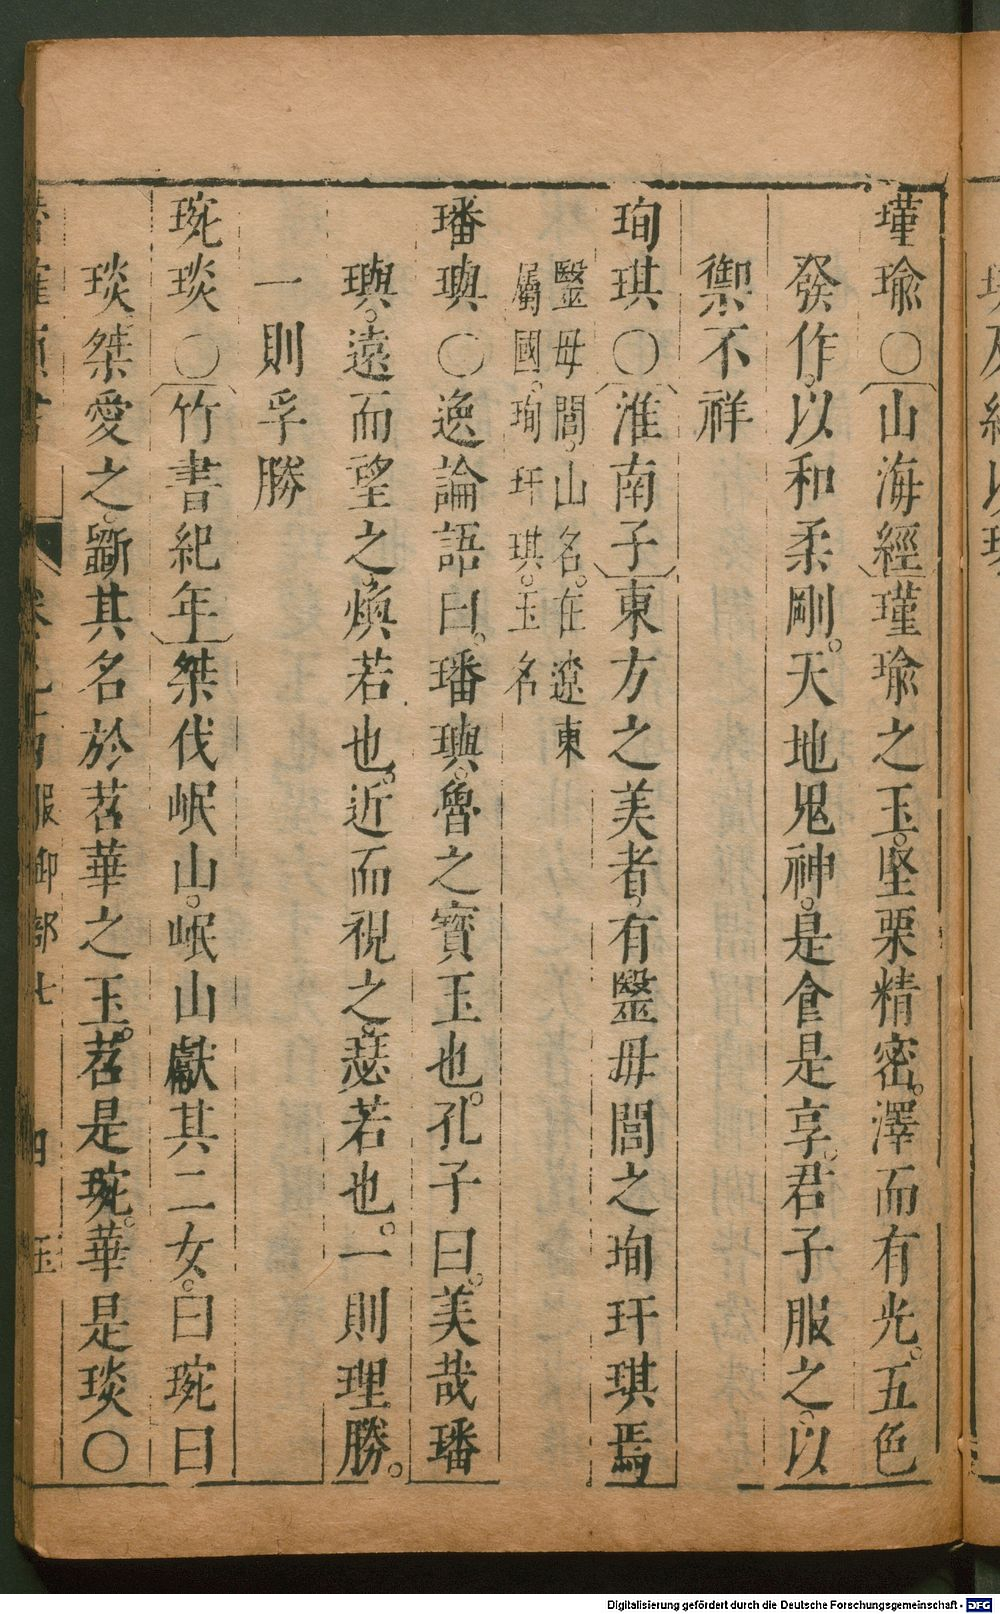 瑾瑜○山海經瑾瑜之玉。堅栗精密。澤而有光。五色
發作。以和柔剛。天地鬼神。是食是享。君子服之。以
禦不祥
珣琪○淮南子東方之美者。有毉毋閭之珣玗琪焉
毉毋閭。山名。在遼東
屬國。珣玗琪。玉名
璠璵○逸論語曰。璠璵。魯之寶玉也。孔子曰。美哉璠
璵。遠而望之。煥若也。近而視之。瑟若也。一則理勝。
一則孚勝
琬琰○竹書紀年桀伐岷山。岷山獻其二女。曰琬曰
琰桀愛之。斵其名於苕華之玉。苕是琬。華是琰○
服御部七 四 玉
Digitalisierung gefördert durch die Deutsche Forschungsgemeinschaft - DFG